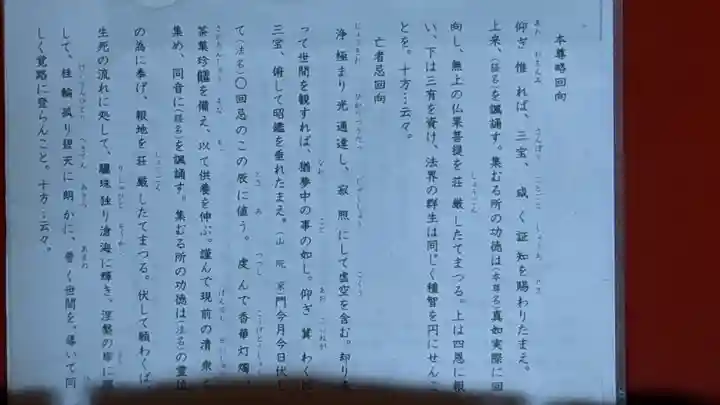 本尊略回向
仰ぎ惟れば、三宝、咸く証知を賜わりたまえ。
上来、(経名)を諷誦す。集むる所の功徳は(本尊名)真如実際に回
向し、無上の仏果菩提を荘厳したてまつる。上は四恩に報
い、下は三有を資け、法界の群生は同じく種智を円にせんこ
とを。十方…云々。
亡者忌回向
浄極まり光通達し、寂照にして虚空を含む。却り来
って世間を観すれば、猶夢中の事の如し。仰ぎ冀わくは
三宝、俯して昭鑑を垂れたまえ。(山院京門今月今日伏し
て(法名)〇回忌のこの辰に値う。虔んで香華灯燭、
茶菓珍饈を備え、以て供養を伸ぶ。謹んで現前の清衆を
集め、同音に(経名)を諷誦す。集むる所の功徳は(法名)の霊位
の為に奉げ、報地を荘厳したてまつる。伏して願わくば、
生死の流れに処して、驪珠独り滄海に輝き、涅槃の岸に
して、桂輪孤り碧天に朗かに、普く世間を導いて同
じく覚路に登らんこと。十方…云々。